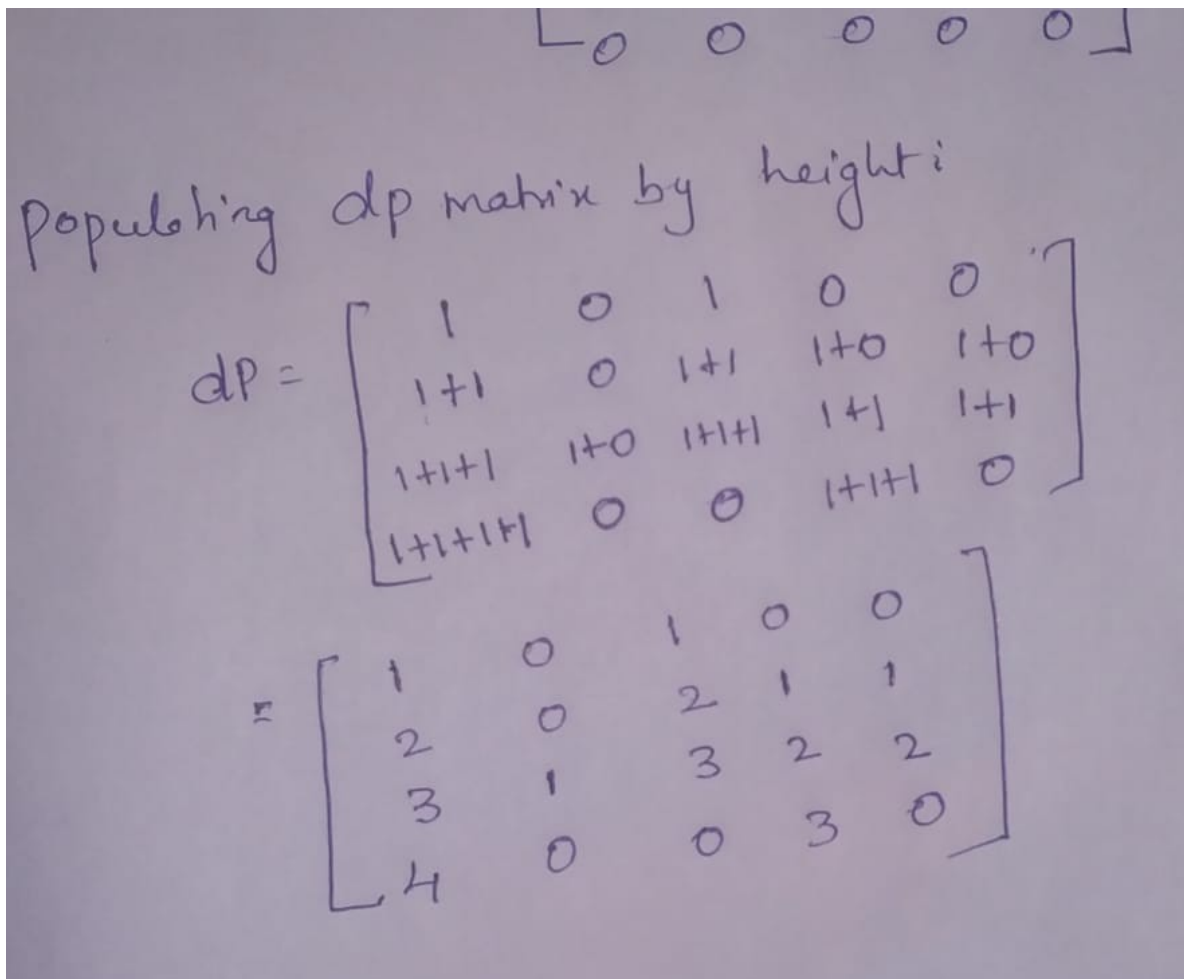 0 0 0 0 0
Populating dp matrix by height:
1 0 1 0 0
dp = 1+1 0 1+1 1+0 1+0
1+1+1 1+0 1+1+1 1+1 1+1
1+1+1+1 0 0 1+1+1 0
1 0 1 0 0
= 2 0 2 1 1
3 1 3 2 2
4 0 0 3 0